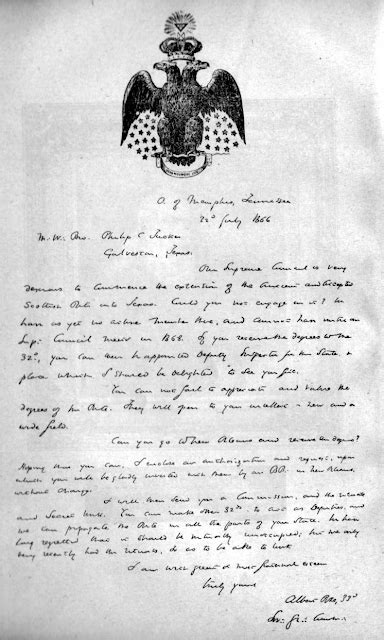 O. of Memphis, Tennessee
22d July 1866
M. W. Bro. Philip C Tucker
Galveston, Texas.
Our Supreme Council is very
desirous to commence the extension of the Ancient and Accepted
Scottish Rite into Texas. Could you not engage in it? We
have as yet no active member there, and cannot have until our
Sup. Council meets in 1868. If you receive the degrees to the
32d, you can then be appointed Deputy Inspector for the State, a
place which I should be delighted to see you fill.
You can not fail to appreciate and value the
degrees of the Rite. They will open to your intellect a new and a
wide field.
Can you go to New Orleans and receive the degrees?
Hoping that you can, I enclose an authorization and request, upon
which you will be gladly invested with them by our BB. in New Orleans,
without charge.
I will then send you a Commission, and the rituals
and secret work. You can make other 32ds to act as Deputies, and
we can propagate the Rite in all the parts of your State. We have
long regretted that it should be virtually unoccupied; but we only
very recently had the rituals, so as to be able to work
I am with great &
truly yours
Albert Pike, 33d
Sov. Gr.